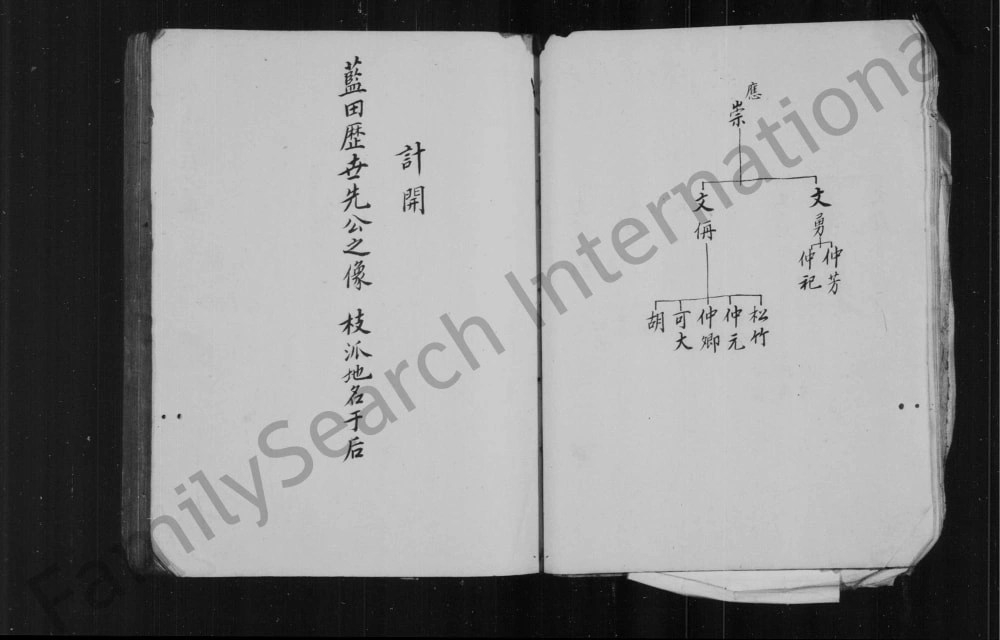 應
崇
文勇
仲芳
仲祀
文侢
松竹
仲元
仲卿
可大
胡
計開
藍田歷世先公之像 枝派地名于后
FamilySearch International